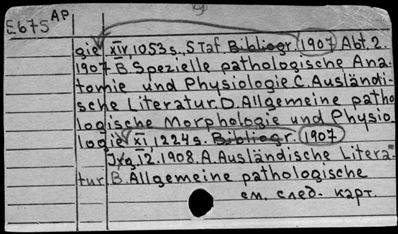 E675 AP
gie XIV, 1053 s. 5 Taf. Bibliogr. 1907 Abt. 2.
1907 B. Spezielle pathologische Ana-
tomie und Physiologie C. Ausländi-
sche Literatur. D. Allgemeine patho
logische Morphologie und Physio
logie XI, 1224 s. Bibliogr. 1907
Jxg. 12. 1908. A. Ausländische Litera-
tur. B. Allgemeine pathologische
см. след. карт.